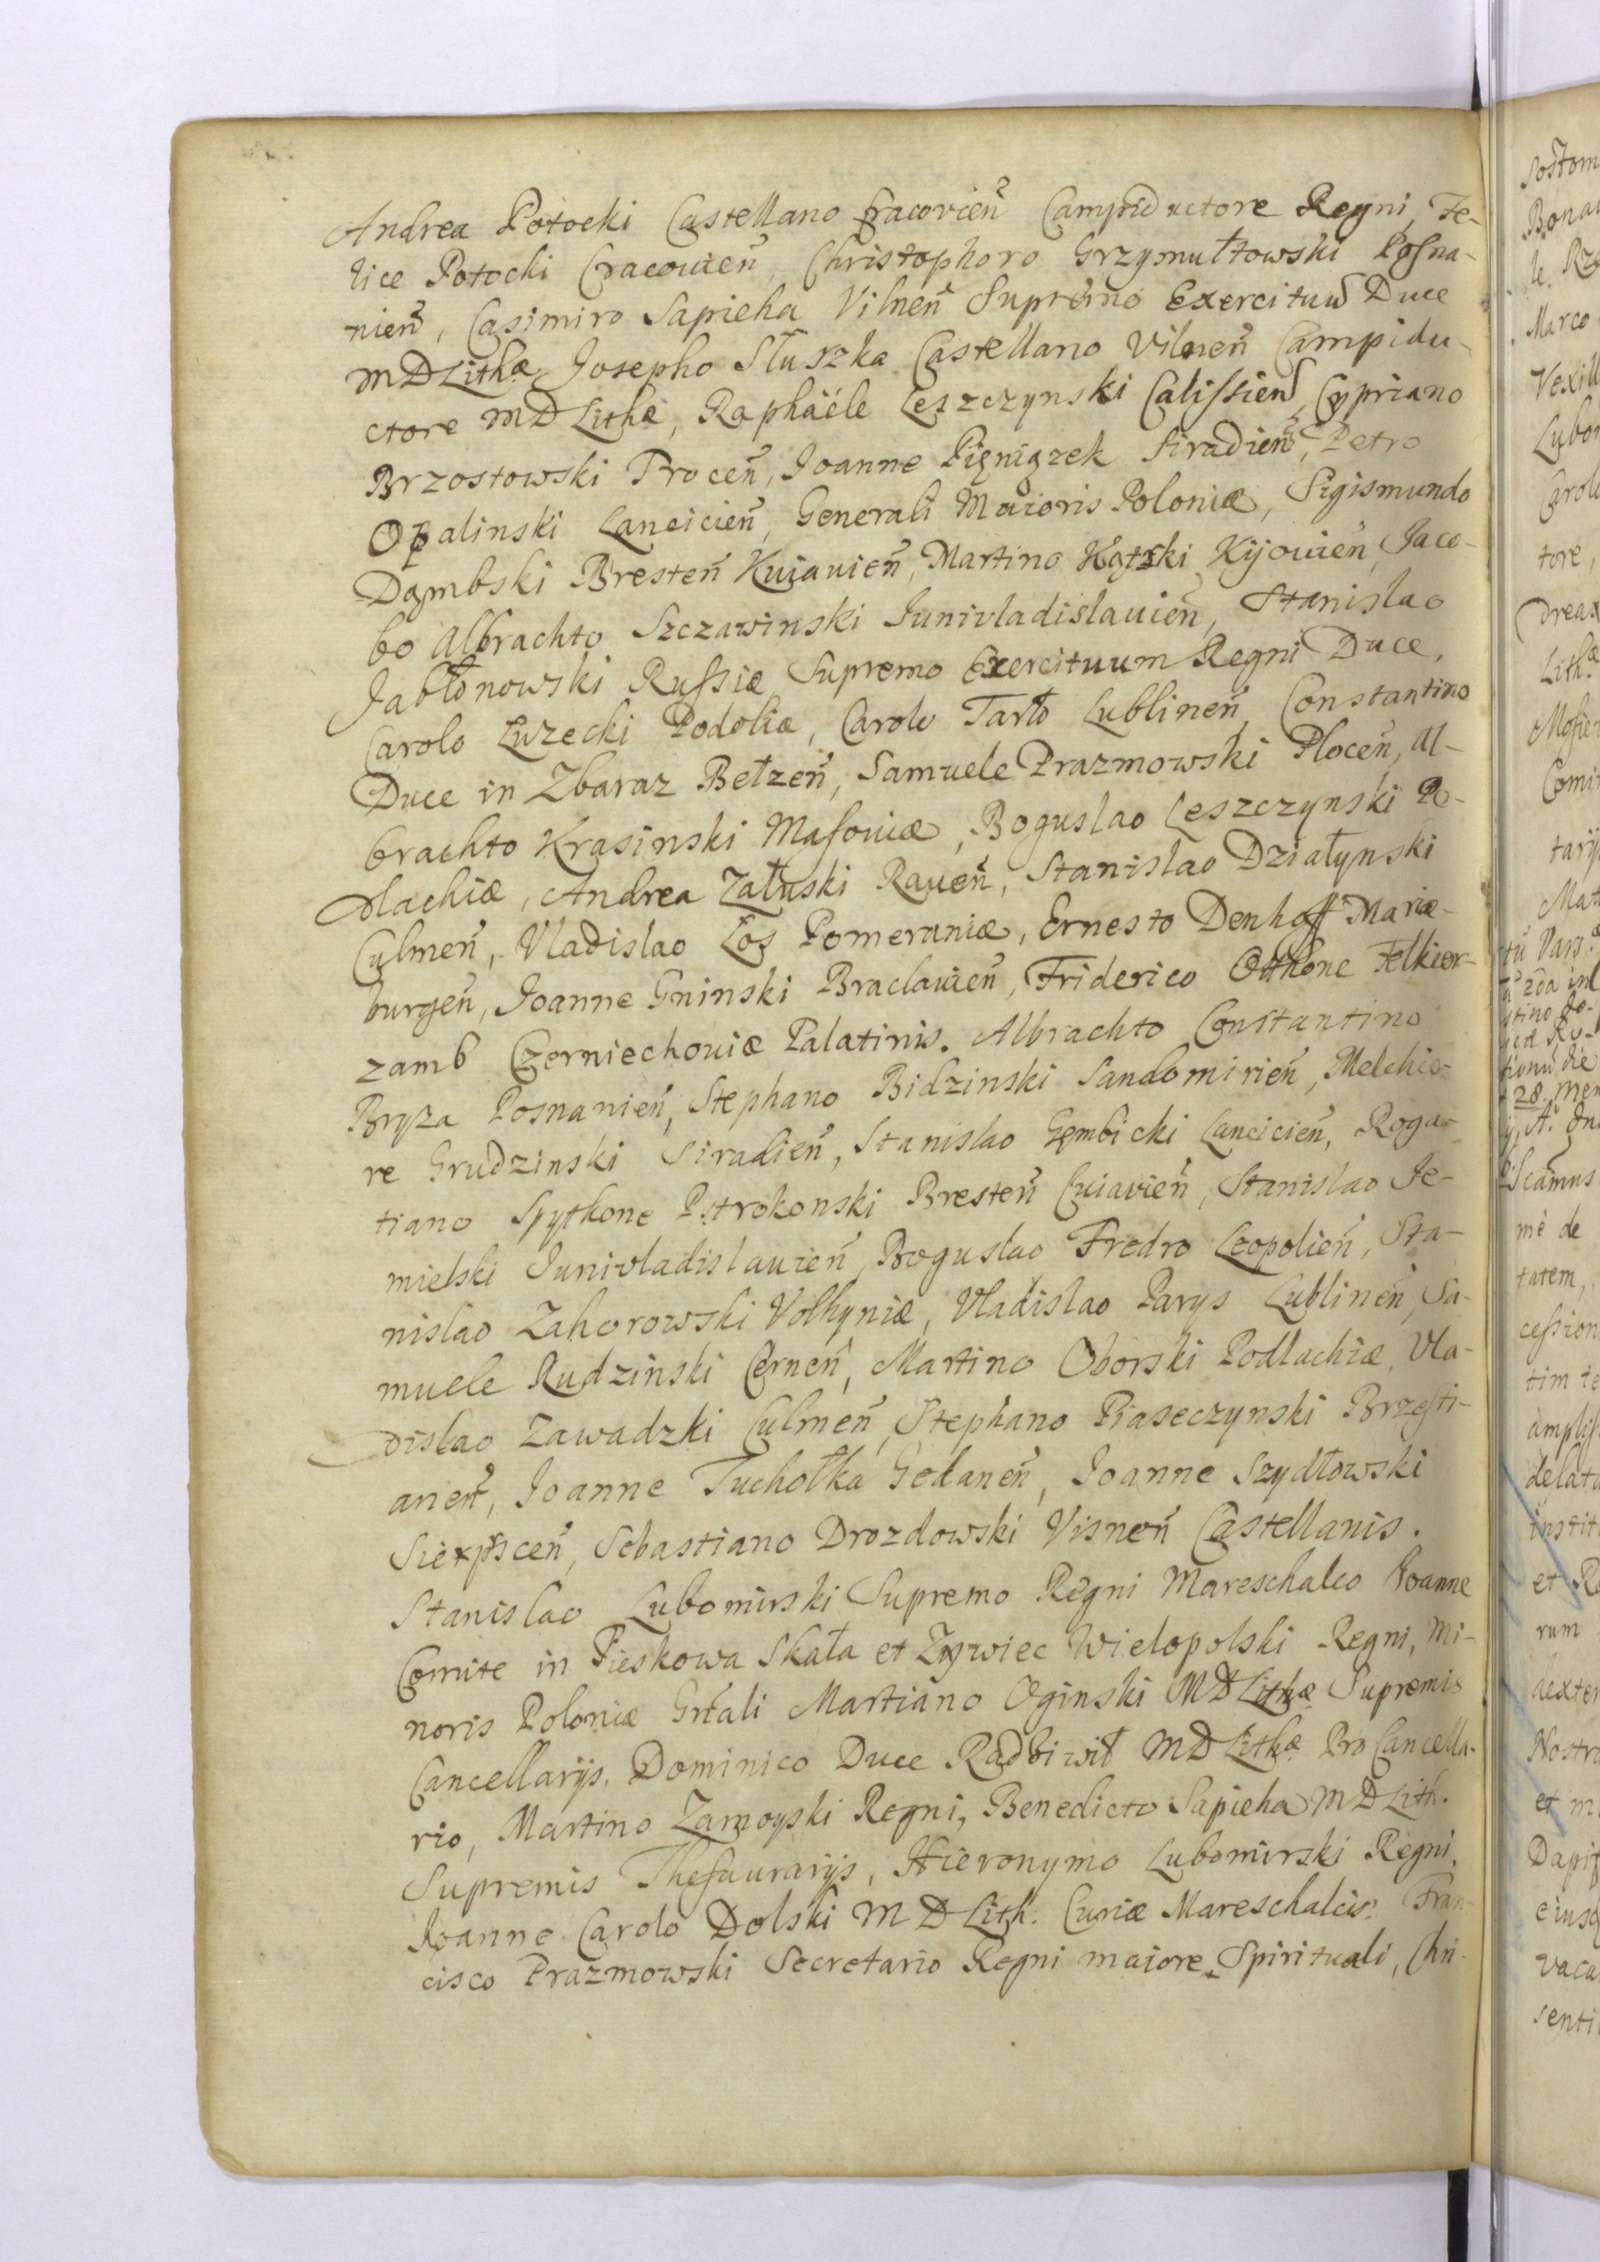 Andrea Potocki Castellano Cracovien̄ Campiductore Regni, Fe-
lice Potocki Cracouien̄, Christophoro Grzymułtowski Posna-
nien̄, Casimiro Sapieha Vilnen̄ Supremo Exercituū Duce
MDLithæ Josepho Słuszka Castellano Vilnen̄ Campidu-
ctore MD Lithæ, Raphaële Leszczynski Calissien̄, Cypriano
Brzostowski Trocen̄, Joanne Pięniązek Siradien̄, Petro
Opalinski Lancicien̄, Generali Maioris Poloniæ, Sigismundo
Dąmbski Bresten̄ Kuiauien̄, Martino Kątski Kijouien̄, Jaco-
bo Albrachto Szczawinski Junivladislauien̄, Stanislao
Jabłonowski Russiæ Supremo Exercituum Regni Duce,
Carolo Łuzecki Podoliæ, Carolo Tarło Lublinen̄, Constantino
Duce in Zbaraz Bełzen̄, Samuele Prazmowski Plocen̄, Al-
brachto Krasinski Masouiæ, Boguslao Leszczynski Po-
dlachiæ, Andrea Załuski Rauen̄, Stanislao Działynski
Culmen̄, Vladislao Łos Pomeraniæ, Ernesto Denhoff Mariæ-
burgen̄, Joanne Gninski Braclauien̄, Friderico Otthone Felkier-
zamb Czerniechouiæ Palatinis. Albrachto Constantino
Bryza Posnanien̄, Stephano Bidzinski Sandomirien̄, Melchio-
re Grudzinski Siradien̄, Stanislao Gembicki Lancicien̄, Roga-
tiano Spytkone Pstrokonski Bresten̄ Cuiavien̄, Stanislao Je-
mielski Junivladislauien̄, Boguslao Fredro Leopolien̄, Sta-
nislao Zahorowski Volhyniæ, Vladislao Parys Lublinen̄, Sa-
muele Rudzinski Cernen̄, Martino Oborski Podlachiæ, Vla-
dislao Zawadzki Culmen̄, Stephano Piaseczynski Brzesti-
anen̄, Joanne Tuchołka Gedanen̄, Joanne Szydłowski
Sierpscen̄, Sebastiano Drozdowski Visnen̄ Castellanis.
Stanislao Lubomirski Supremo Regni Mareschalco Joanne
Comite in Pieskowa Skała et Zywiec Wielopolski Regni, Mi-
noris Poloniæ Grāli Martiano Oginski MD Lithæ Supremis
Cancellarijs, Dominico Duce Radziwił MD Lithæ Pro Cancella-
rio, Martino Zamoyski Regni, Benedicto Sapieha MD Lith.
Supremis Thesaurarijs, Hieronymo Lubomirski Regni,
Joanne Carolo Dolski MD Lith. Curiæ Mareschalcis. Fran-
cisco Prazmowski Secretario Regni maiore Spirituali, Chri-